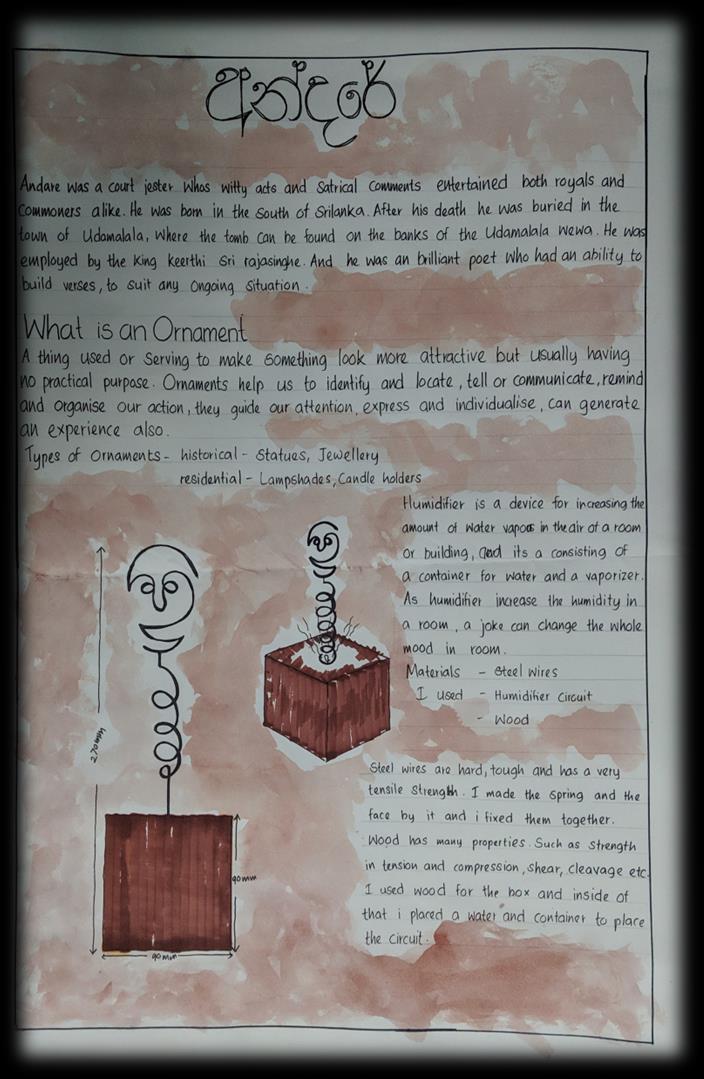 අන්දරේ
Andare was a court jester whos witty acts and Satrical Comments entertained both royals and
Commoners alike. He was born in the South of Srilanka. After his death he was buried in the
town of Udamalala, where the tomb can be found on the banks of the Udamalala wewa. He was
employed by the King Keerthi Sri rajasinghe. And he was an brilliant poet who had an ability to
build verses, to suit any ongoing situation.
What is an Ornament
A thing used or serving to make something look more attractive but usually having
no practical purpose. Ornaments help us to identify and locate, tell or communicate, remind
and organise our action, they guide our attention, express and individualise, can generate
an experience also.
Types of Ornaments - historical - Statues, Jewellery
residential - Lampshades, Candle holders
Humidifier is a device for increasing the
amount of water vapour in the air of a room
or building, and its a consisting of
a container for water and a vaporizer.
As humidifier increase the humidity in
a room, a joke can change the whole
mood in room.
Materials - Steel wires
I used - Humidifier Circuit
- Wood
Steel wires are hard, tough and has a very
tensile strength. I made the spring and the
face by it and i fixed them together.
Wood has many properties. Such as strength
in tension and compression, shear, cleavage etc.
I used wood for the box and inside of
that i placed a water and container to place
the circuit.
270mm
90mm
90mm